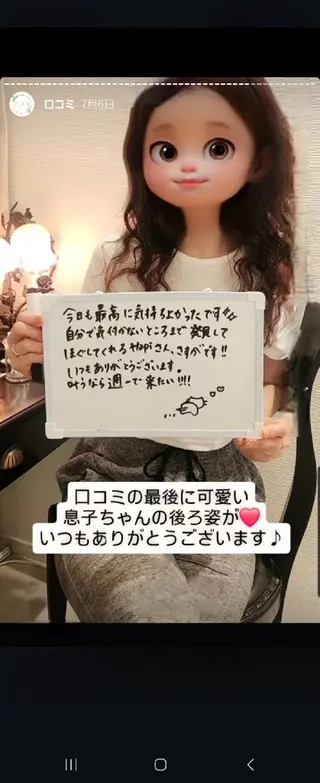 口コミ 7月6日
今日も最高に気持ちよかったです
自分で気付かないところまで発見して
ほぐしてくれるHapiさん、さすがです!!
いつもありがとうございます。
叶うなら週一で来たい!!!!
口コミの最後に可愛い
息子ちゃんの後ろ姿が❤
いつもありがとうございます♪